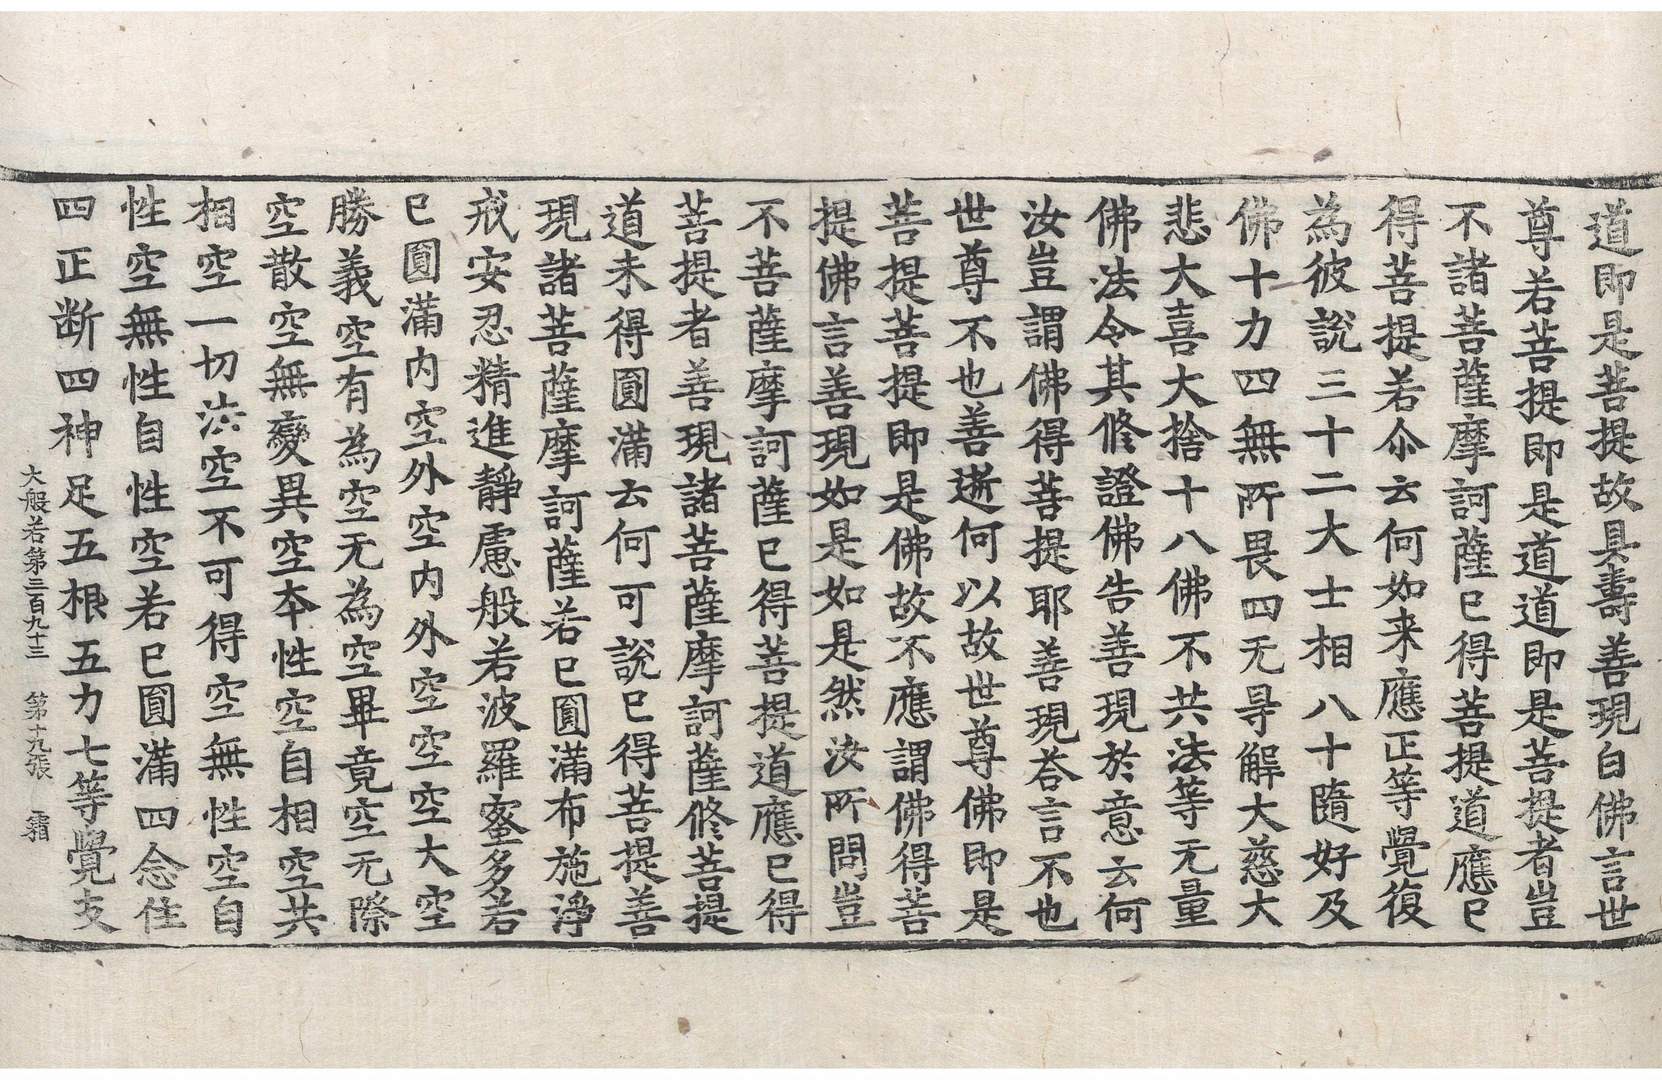 道即是菩提故具壽善現白佛言世
尊若菩提即是道道即是菩提者豈
不諸菩薩摩訶薩已得菩提道應已
得菩提若尒云何如来應正等覺復
為彼說三十二大士相八十隨好及
佛十力四無所畏四无㝵解大慈大
悲大喜大捨十八佛不共法等无量
佛法令其修證佛告善現於意云何
汝豈謂佛得菩提耶善現荅言不也
世尊不也善逝何以故世尊佛即是
菩提菩提即是佛故不應謂佛得菩
提佛言善現如是如是然汝所問豈
不菩薩摩訶薩已得菩提道應已得
菩提者善現諸菩薩摩訶薩修菩提
道未得圓滿云何可說已得菩提善
現諸菩薩摩訶薩若已圓滿布施淨
戒安忍精進靜慮般若波羅蜜多若
已圓滿內空外空內外空空空大空
勝義空有為空无為空畢竟空无際
空散空無變異空本性空自相空共
相空一切法空不可得空無性空自
性空無性自性空若已圓滿四念住
四正断四神足五根五力七等覺支
大般若第三百九十三 第十九張 霜